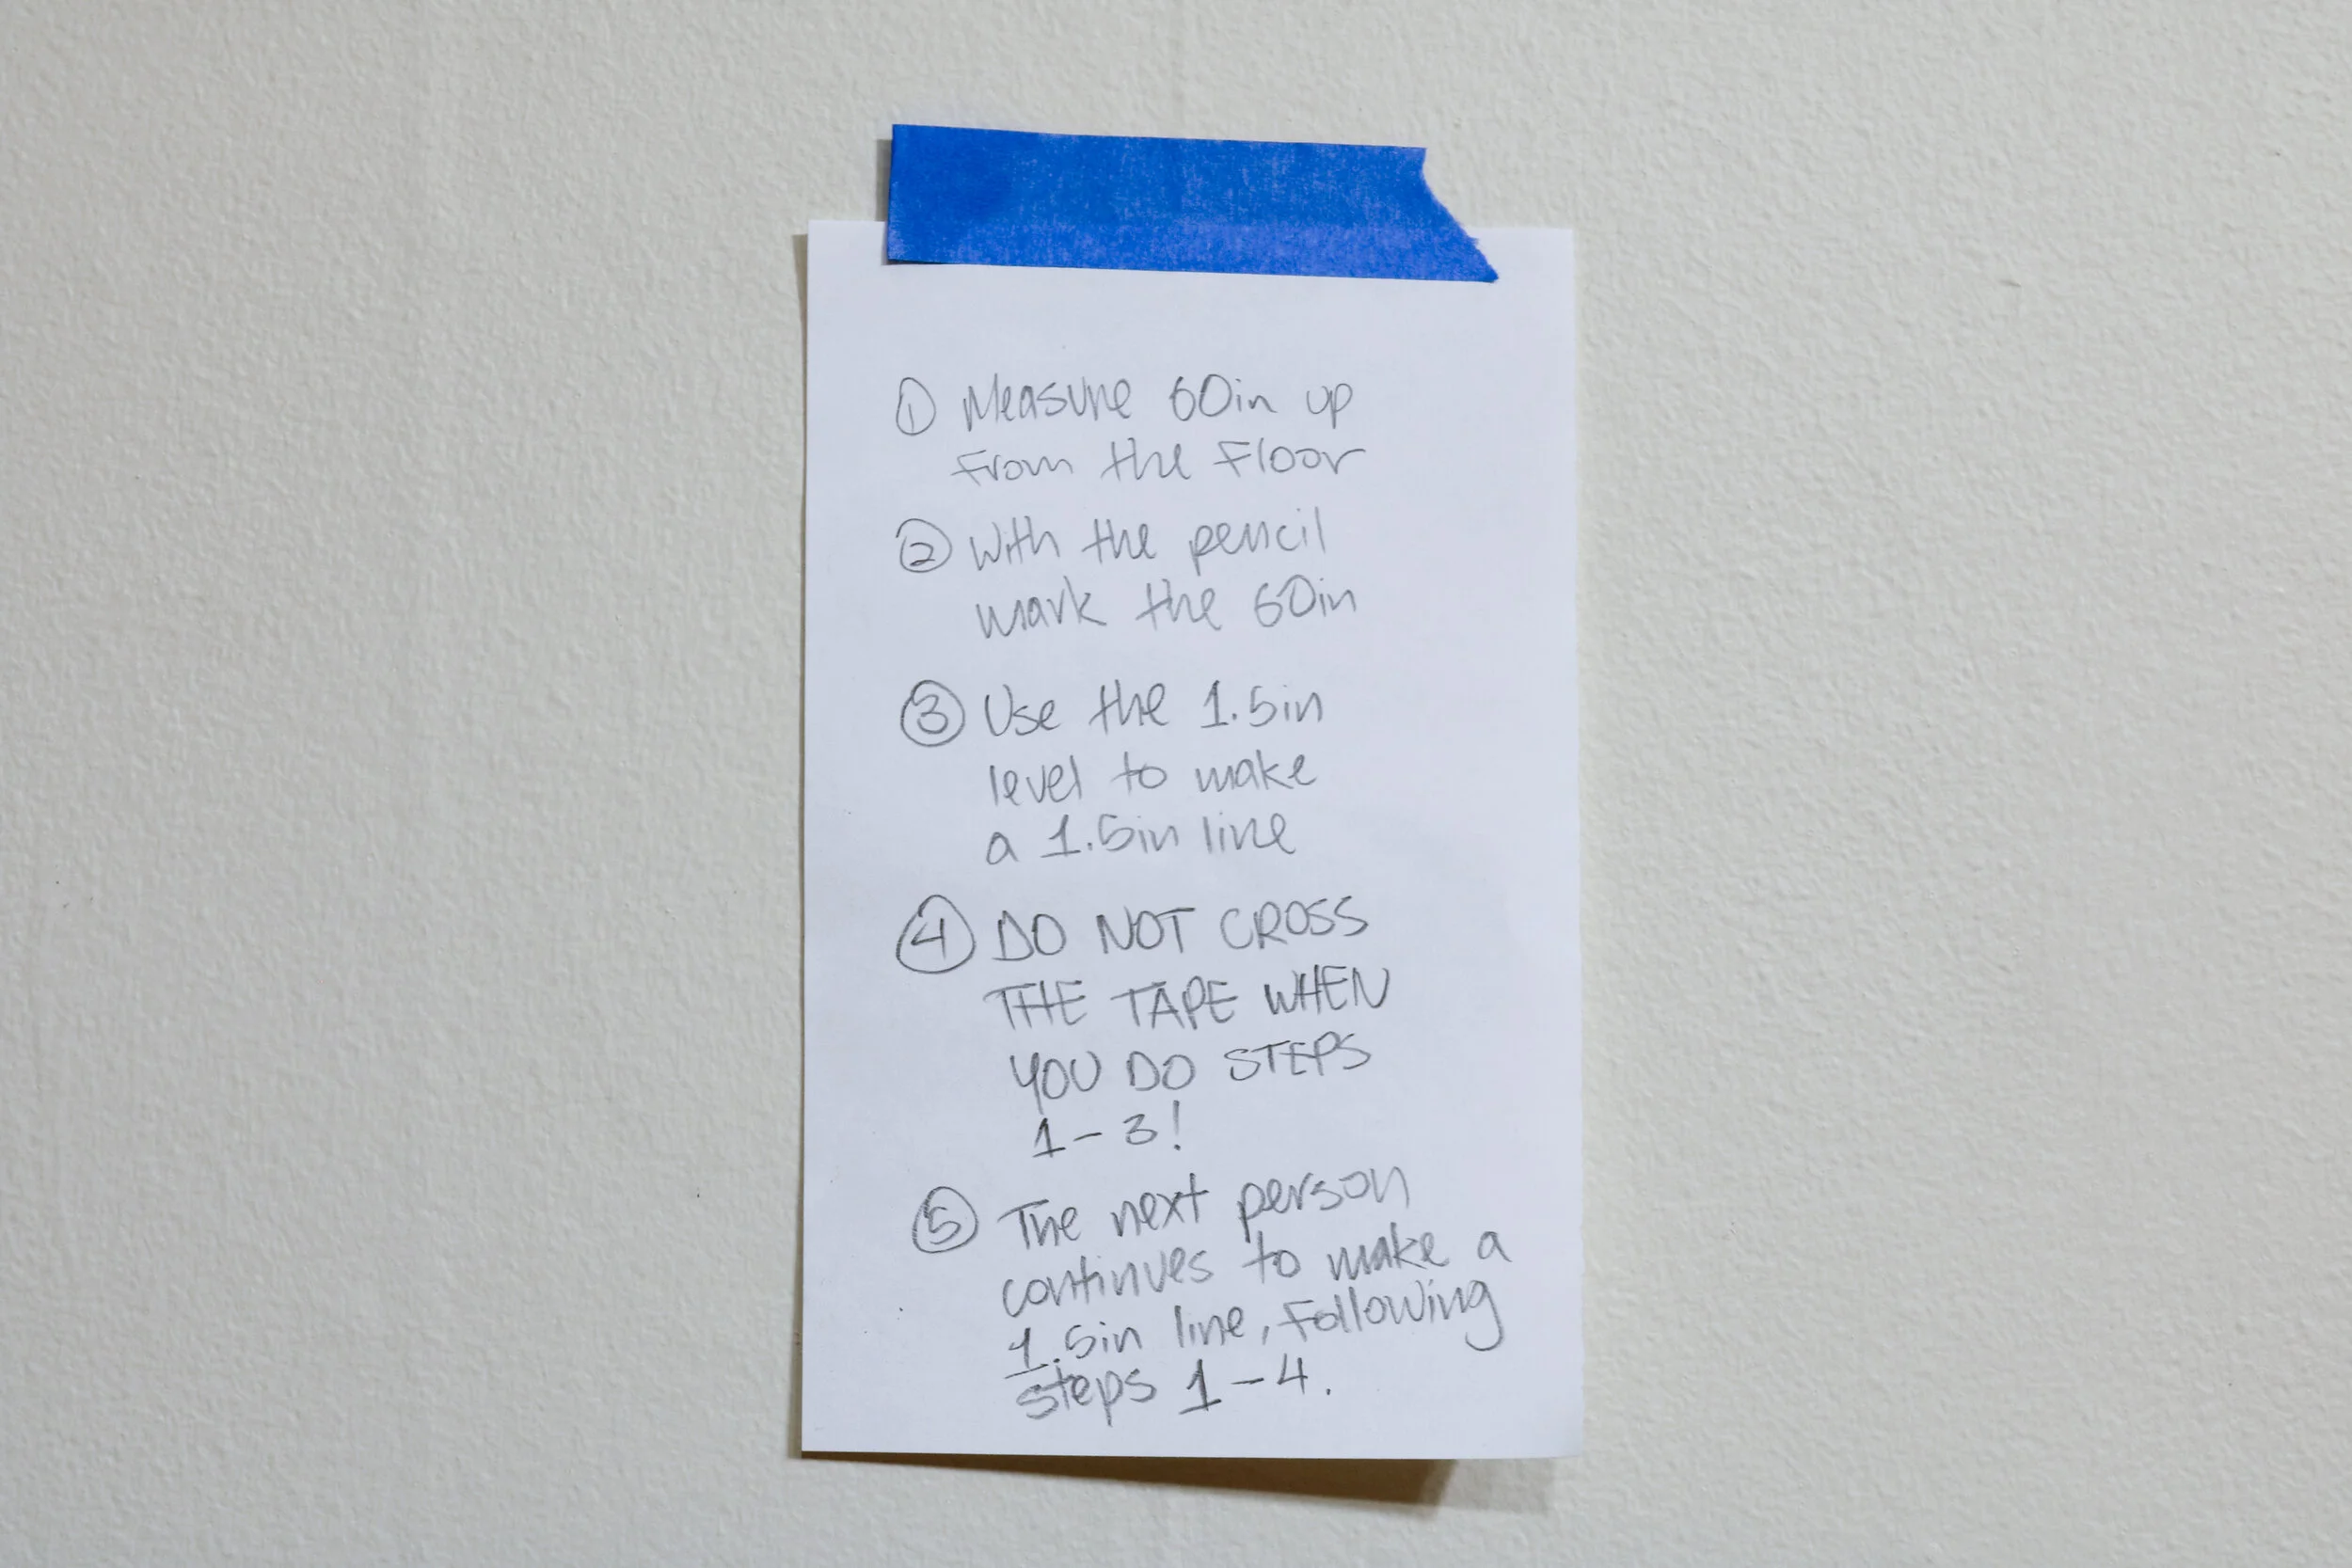 ① Measure 60in up
from the Floor
② With the pencil
mark the 60in
③ Use the 1.5in
level to make
a 1.5in line
④ DO NOT CROSS
THE TAPE WHEN
YOU DO STEPS
1-3!
⑤ The next person
continues to make a
1.5in line, Following
steps 1-4.